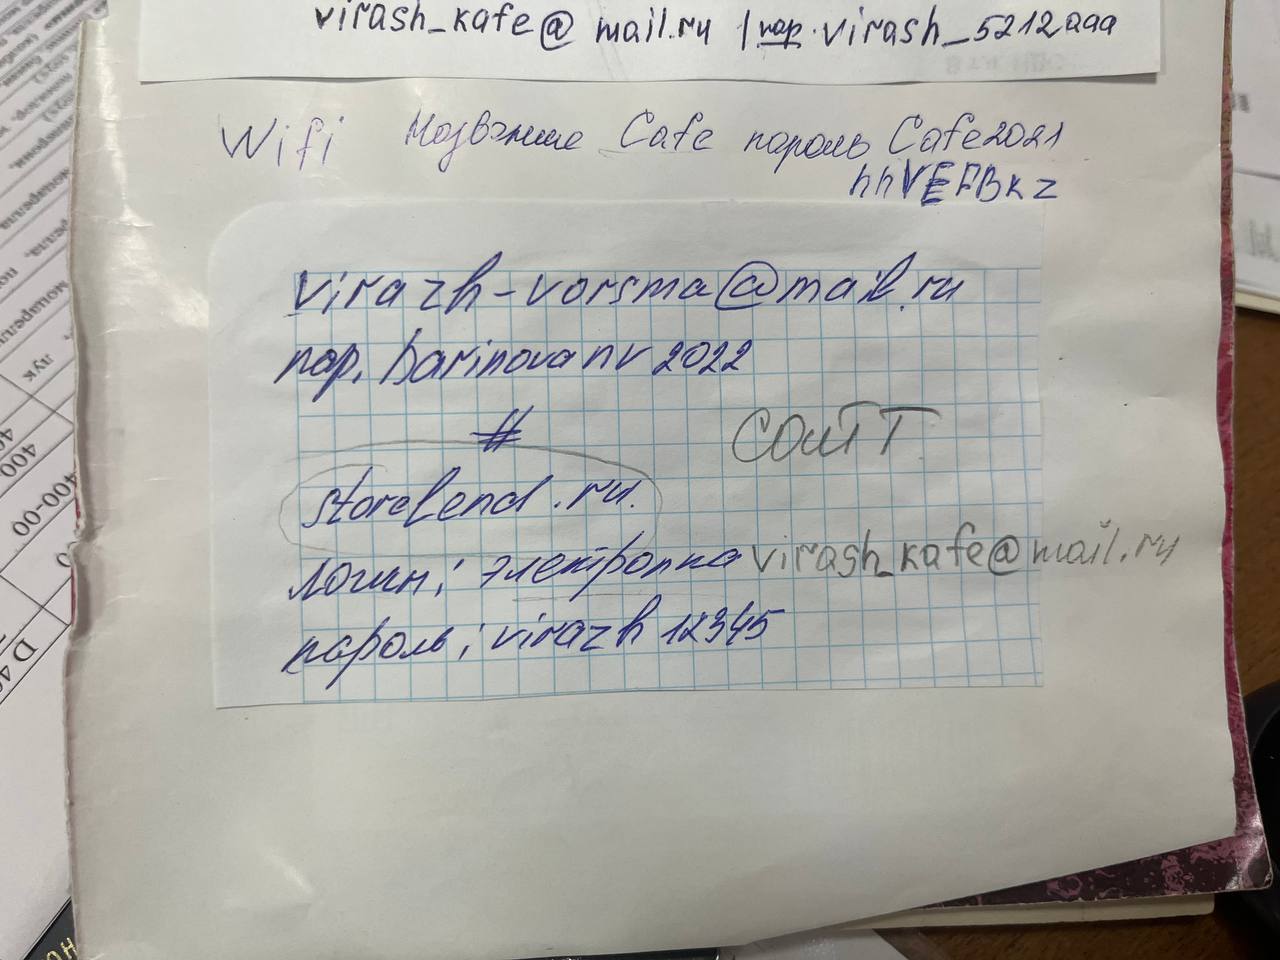 virash_kafe@mail.ru | пар. virash_5212aaa
Wifi Название Cafe пароль Cafe2021
hhVEFBKZ
virazh-vorsma@mail.ru
пар. barinovanv2022
#
сайт
storelend.ru.
логин: электронка virash_kafe@mail.ru
пароль: virazh12345
лук
400
400-00